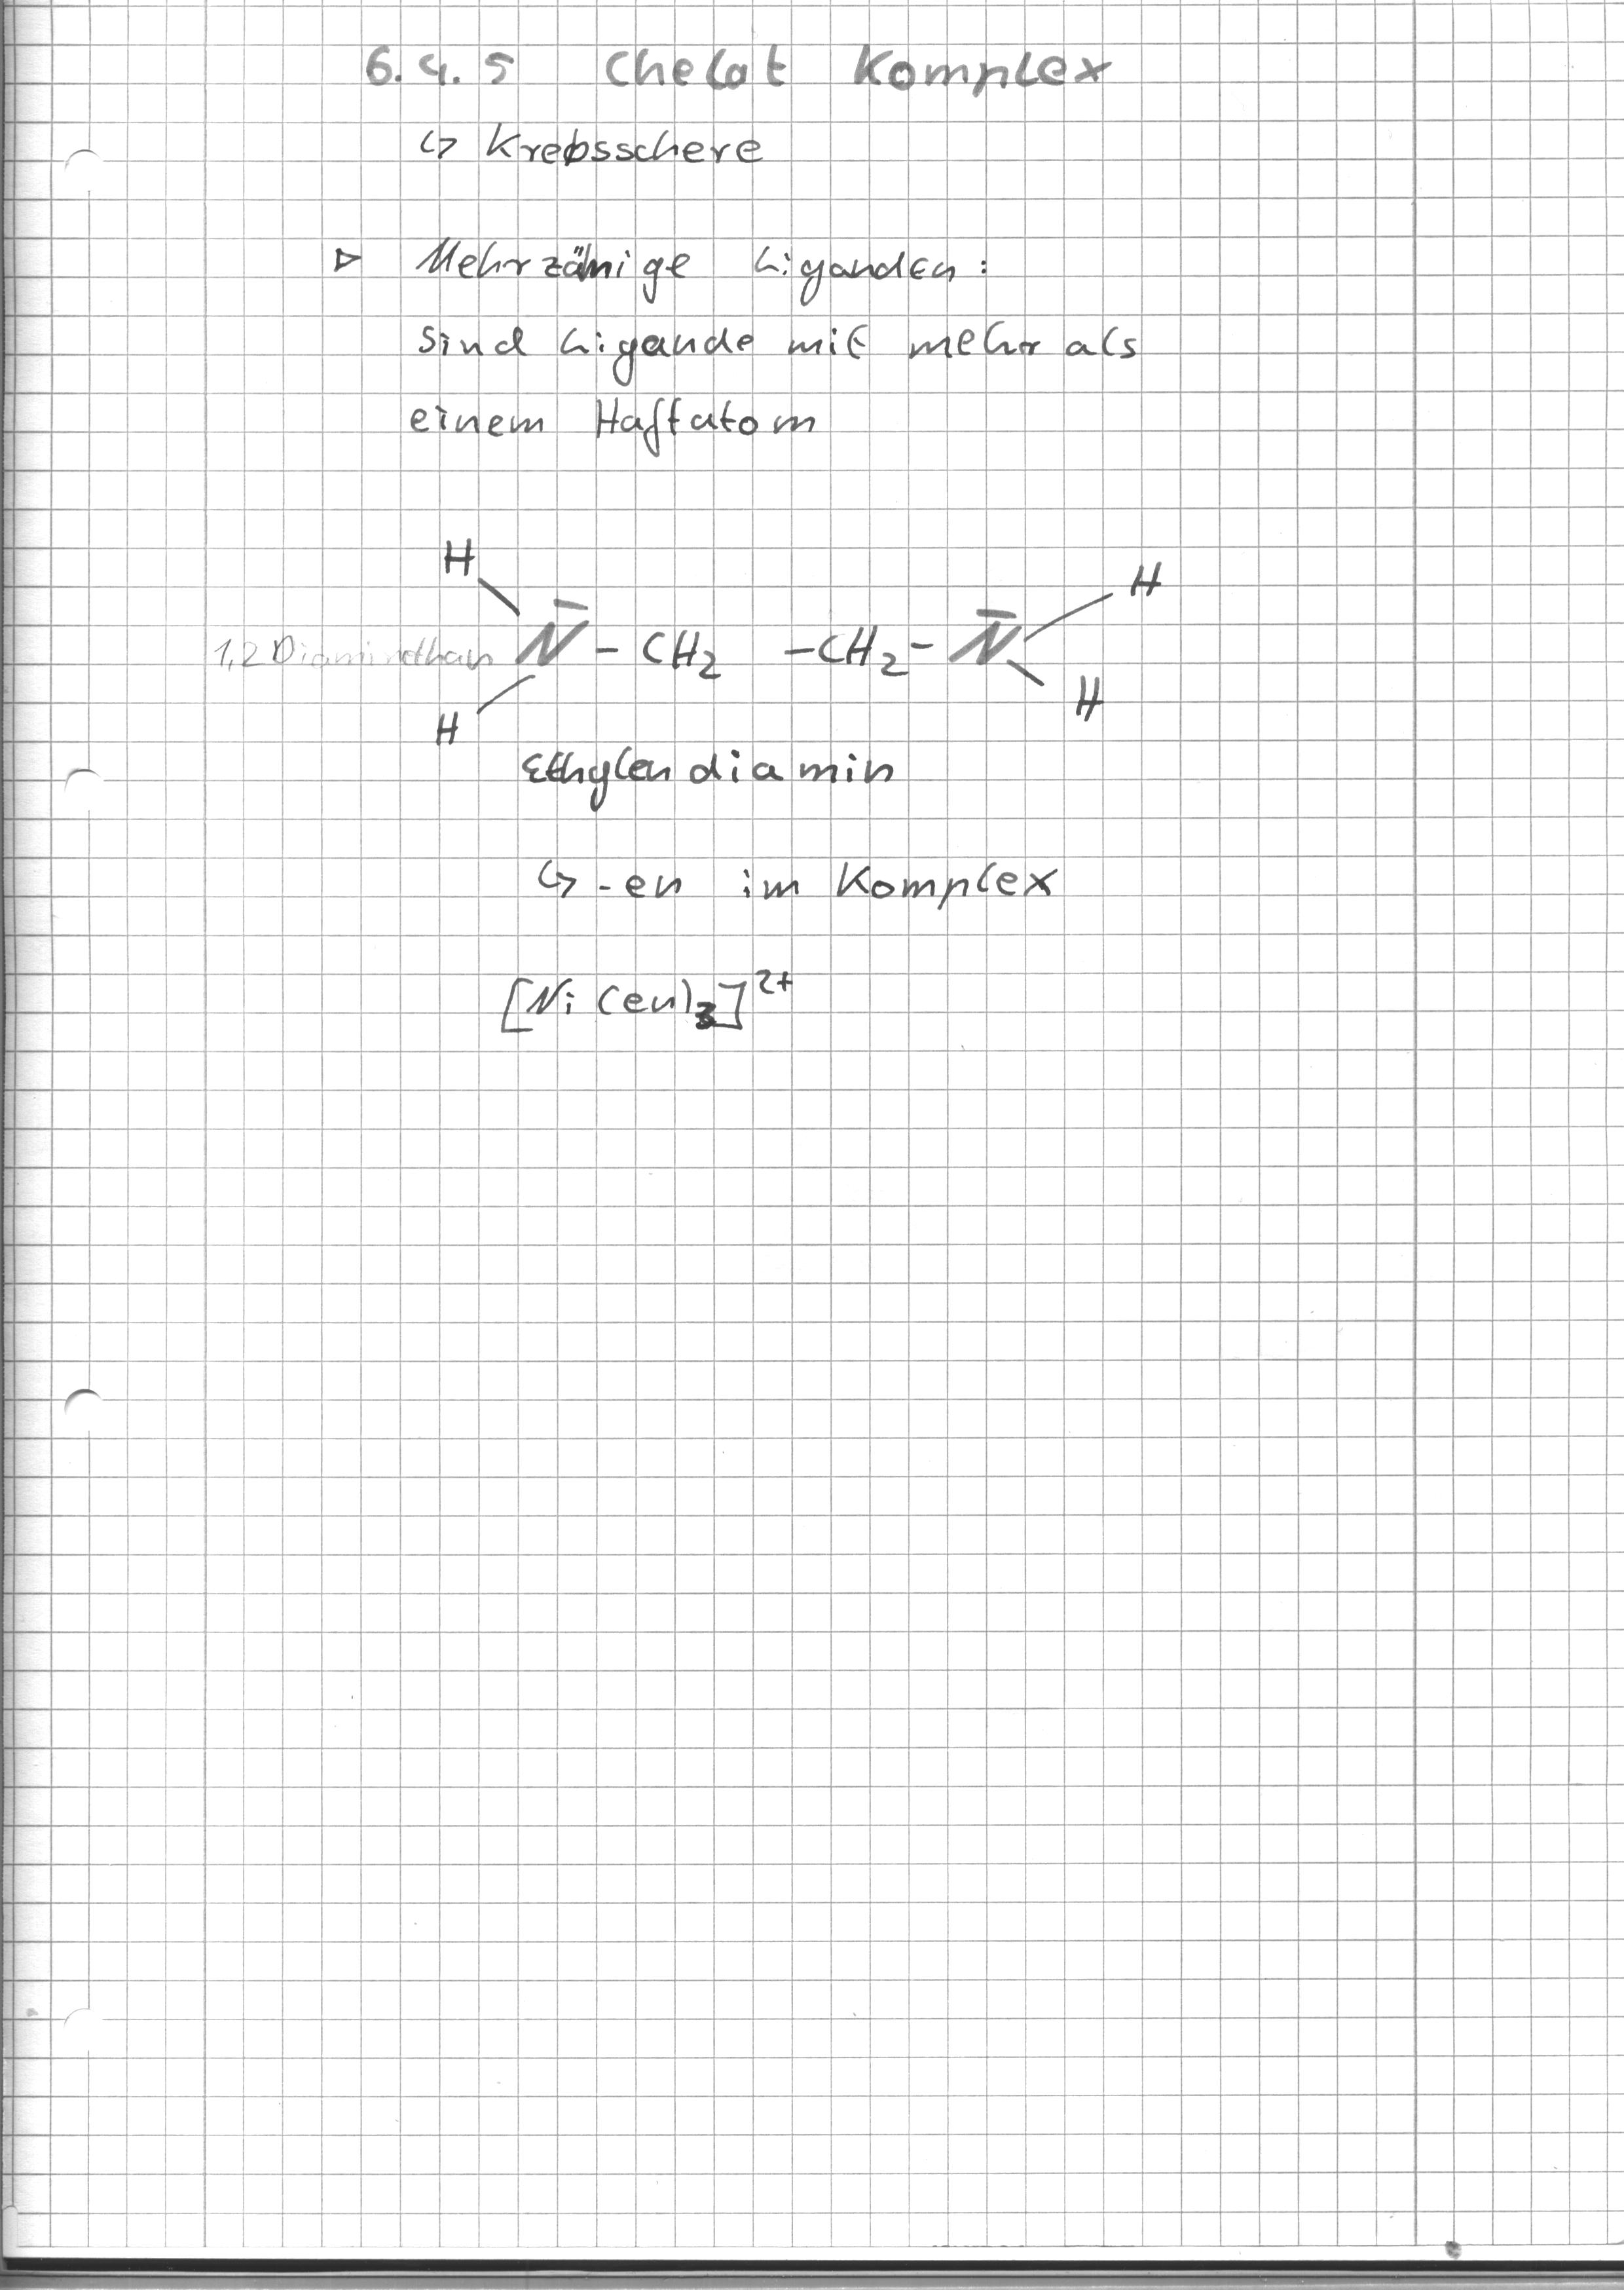 6.4.5 Chelat Komplex
↳ Krebsschere
▷ Mehrzähnige Liganden:
sind Ligande mit mehr als
einem Haftatom
H H
1,2 Diaminethan N̅ - CH₂ -CH₂- N̅
H H
Ethylendiamin
↳ -en im Komplex
[Ni(en)₃]²⁺